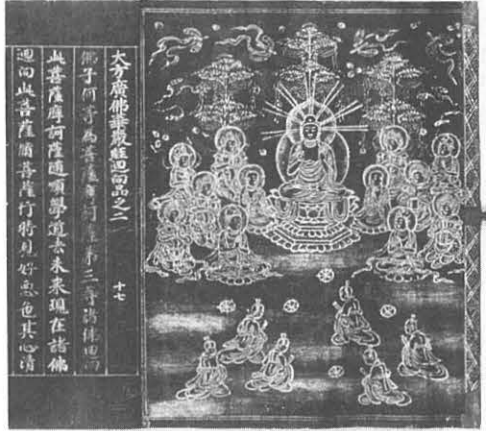 大方廣佛華嚴經迴向品之二 十七
佛子何等為菩薩摩訶薩第三等諸佛迴向
此菩薩摩訶薩隨順學過去未來現在諸佛
迴向此菩薩隨菩薩行時見好惡色其心清